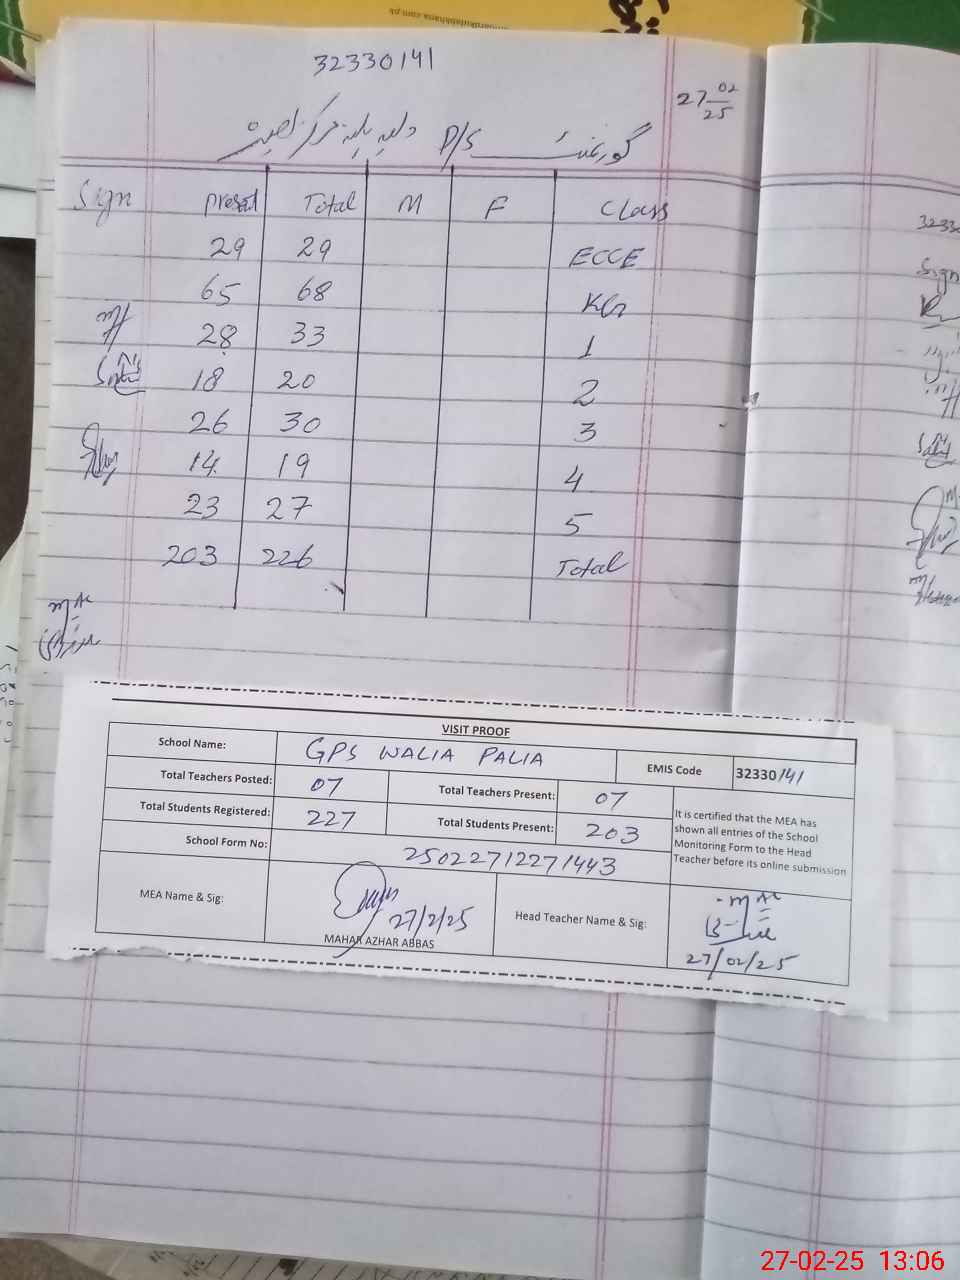 32330141
27 02/25
گورنمنٹ P/S
Sign Present Total M F Class
29 29 ECCE
65 68 KG
28 33 1
18 20 2
26 30 3
14 19 4
23 27 5
203 226 Total
VISIT PROOF
School Name: GPS WALIA PALIA EMIS Code 32330141
Total Teachers Posted: 07 Total Teachers Present: 07
Total Students Registered: 227 Total Students Present: 203
It is certified that the MEA has
shown all entries of the School
Monitoring Form to the Head
Teacher before its online submission
School Form No: 25022712271443
MEA Name & Sig: 27/2/25
MAHAR AZHAR ABBAS
Head Teacher Name & Sig: 27/02/25
Sign
27-02-25 13:06